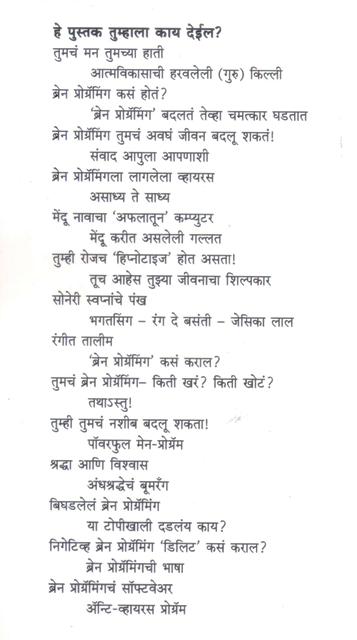 हे पुस्तक तुम्हाला काय देईल?
तुमचं मन तुमच्या हाती
आत्मविकासाची हरवलेली (गुरु) किल्ली
ब्रेन प्रोग्रॅमिंग कसं होतं?
'ब्रेन प्रोग्रॅमिंग' बदलतं तेव्हा चमत्कार घडतात
ब्रेन प्रोग्रॅमिंग तुमचं अवघं जीवन बदलू शकतं!
संवाद आपुला आपणाशी
ब्रेन प्रोग्रॅमिंगला लागलेला व्हायरस
असाध्य ते साध्य
मेंदू नावाचा 'अफलातून' कम्प्युटर
मेंदू करीत असलेली गल्लत
तुम्ही रोजच 'हिप्नोटाइज' होत असता!
तूच आहेस तुझ्या जीवनाचा शिल्पकार
सोनेरी स्वप्नांचे पंख
भगतसिंग – रंग दे बसंती – जेसिका लाल
रंगीत तालीम
'ब्रेन प्रोग्रॅमिंग' कसं कराल?
तुमचं ब्रेन प्रोग्रॅमिंग– किती खरं? किती खोटं?
तथाऽस्तु!
तुम्ही तुमचं नशीब बदलू शकता!
पॉवरफुल मेन-प्रोग्रॅम
श्रद्धा आणि विश्वास
अंधश्रद्धेचं बूमरँग
बिघडलेलं ब्रेन प्रोग्रॅमिंग
या टोपीखाली दडलंय काय?
निगेटिव्ह ब्रेन प्रोग्रॅमिंग 'डिलिट' कसं कराल?
ब्रेन प्रोग्रॅमिंगची भाषा
ब्रेन प्रोग्रॅमिंगचं सॉफ्टवेअर
ॲन्टि-व्हायरस प्रोग्रॅम